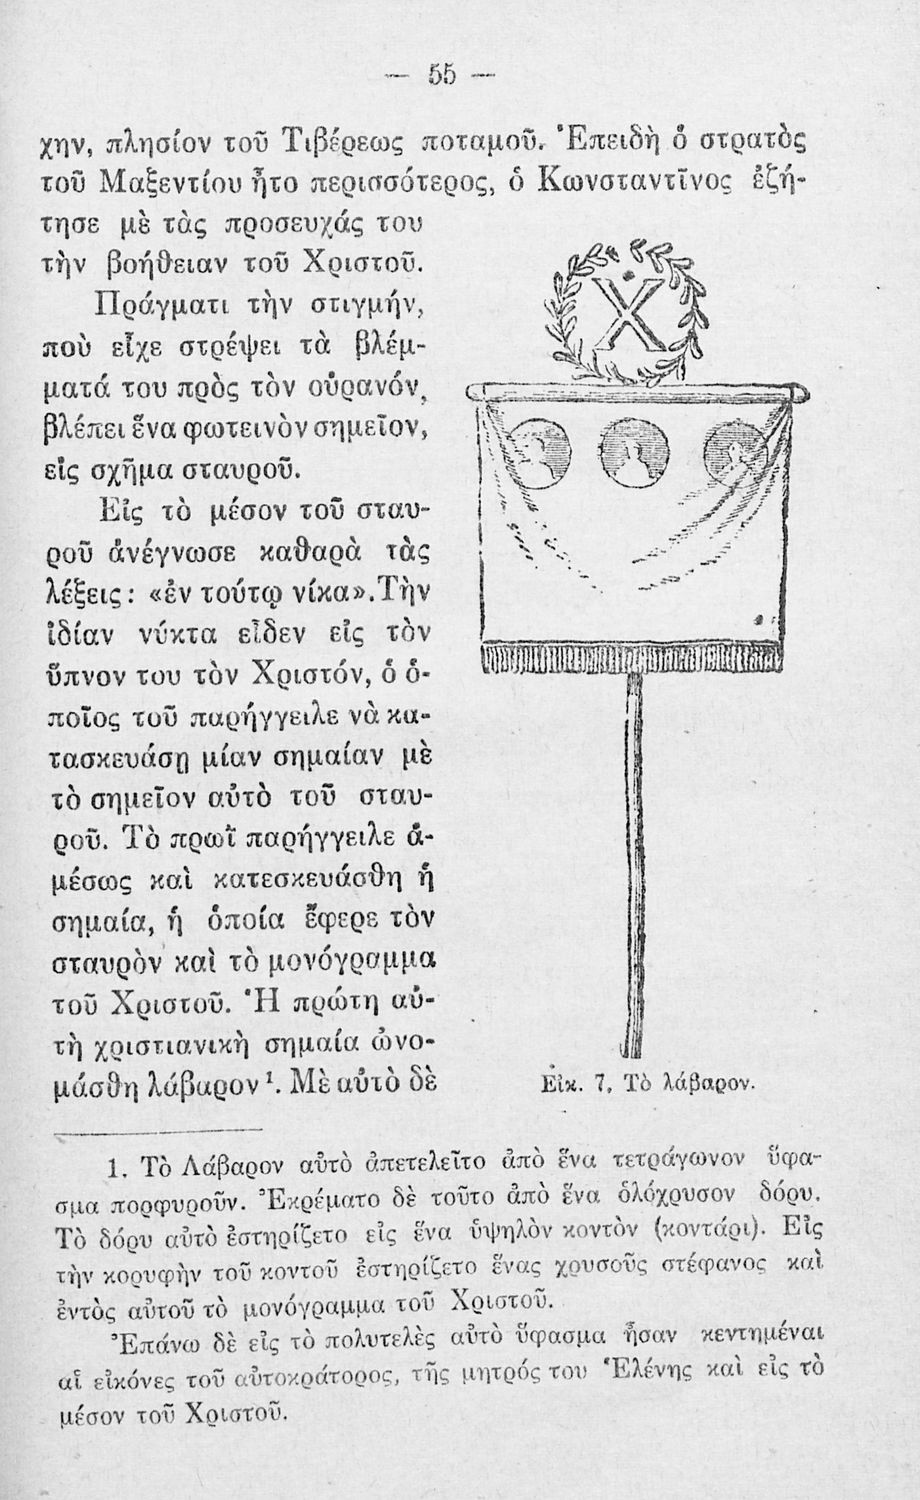 — 55 —
χην, πλησίον τοῦ Τιβέρεως ποταμοῦ. Ἐπειδὴ ὁ στρατὸς
τοῦ Μαξεντίου ἦτο περισσότερος, ὁ Κωνσταντῖνος ἐζή-
τησε μὲ τὰς προσευχάς του
τὴν βοήθειαν τοῦ Χριστοῦ.
Πράγματι τὴν στιγμήν,
ποὺ εἶχε στρέψει τὰ βλέμ-
ματά του πρὸς τὸν οὐρανόν,
βλέπει ἕνα φωτεινὸν σημεῖον,
εἰς σχῆμα σταυροῦ.
Εἰς τὸ μέσον τοῦ σταυ-
ροῦ ἀνέγνωσε καθαρὰ τὰς
λέξεις: «ἐν τούτῳ νίκα». Τὴν
ἰδίαν νύκτα εἶδεν εἰς τὸν
ὕπνον του τὸν Χριστόν, ὁ ὁ-
ποῖος τοῦ παρήγγειλε νὰ κα-
τασκευάσῃ μίαν σημαίαν μὲ
τὸ σημεῖον αὐτὸ τοῦ σταυ-
ροῦ. Τὸ πρωῒ παρήγγειλε ἀ-
μέσως καὶ κατεσκευάσθη ἡ
σημαία, ἡ ὁποία ἔφερε τὸν
σταυρὸν καὶ τὸ μονόγραμμα
τοῦ Χριστοῦ. Ἡ πρώτη αὐ-
τὴ χριστιανικὴ σημαία ὠνο-
μάσθη λάβαρον¹. Μὲ αὐτὸ δὲ
Εἰκ. 7, Τὸ λάβαρον.
1. Τὸ Λάβαρον αὐτὸ ἀπετελεῖτο ἀπὸ ἕνα τετράγωνον ὕφα-
σμα πορφυροῦν. Ἐκρέματο δὲ τοῦτο ἀπὸ ἕνα ὁλόχρυσον δόρυ.
Τὸ δόρυ αὐτὸ ἐστηρίζετο εἰς ἕνα ὑψηλὸν κοντὸν (κοντάρι). Εἰς
τὴν κορυφὴν τοῦ κοντοῦ ἐστηρίζετο ἕνας χρυσοῦς στέφανος καὶ
ἐντὸς αὐτοῦ τὸ μονόγραμμα τοῦ Χριστοῦ.
Ἐπάνω δὲ εἰς τὸ πολυτελὲς αὐτὸ ὕφασμα ἦσαν κεντημέναι
αἱ εἰκόνες τοῦ αὐτοκράτορος, τῆς μητρός του Ἑλένης καὶ εἰς τὸ
μέσον τοῦ Χριστοῦ.